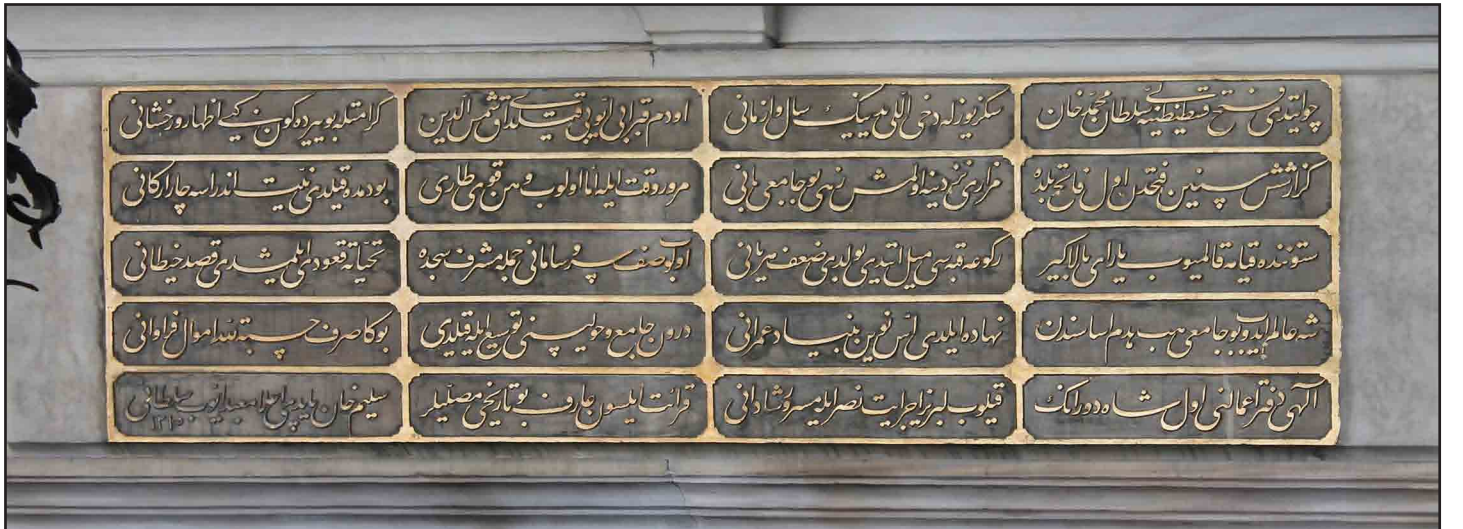 چو ایتدی فتح قسطنطنیه یی سلطان محمد خان
سکز یوز له دخی اللی یدی سال و ازمانی
اودم قبر ابی ایوبی آق شمس الدین
کرامتله بو یرده کون کبی اظهار و رخشانی
سنین فتحدن اول فاتح بلده
مزاری نزدینه اولمش بو جامعی بانی
مرور وقت ایله اما اولوب وهن قوی طاری
بو دمده قیلدی نیت اندراسه چار ارکانی
ستوننده قیامه قالمیوب یارای بالا
رکوعه قبه سی میل ایتدی بولدی ضعف میزانی
اولوب صف سامانی جمله مشرف سجده
تحیاته قعودی ایلمشدی قصد حیطانی
شه عالم ایدوب بو جامعی هپ هدم اساسندن
نهاده ایلدی اس نوین بنیاد عمرانی
درون جامع و حولیسنی توسیع ایله قیلدی
بوکا صرف حسبة لله اموال فراوانی
آلهی دفتر اعمالنی اول شاه دورانك
قیلوب لبریز اجر ایت نصر ایله مسرور و شادانی
قرائت ایلسون عارف بو تاریخی مصلیلر
سلیم خان یاپدی احیا معبد ایوب سلطانی
١٢١٥